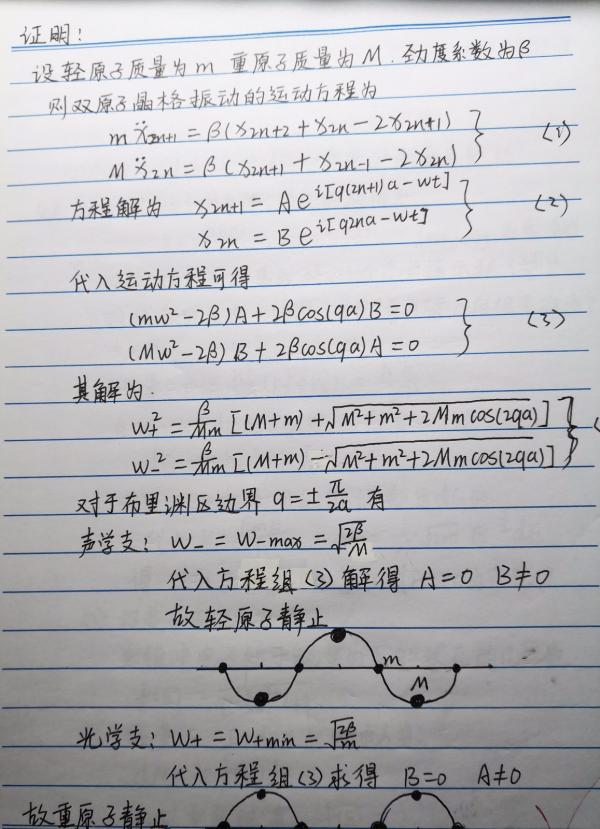 证明：
设轻原子质量为m 重原子质量为M. 劲度系数为β
则双原子晶格振动的运动方程为
mẍ2n+1 = β(x2n+2 + x2n - 2x2n+1)
Mẍ2n = β(x2n+1 + x2n-1 - 2x2n) } (1)
方程解为 x2n+1 = A e^i[q(2n+1)a - wt]
x2n = B e^i[q2na - wt] } (2)
代入运动方程可得
(mw² - 2β)A + 2βcos(qa)B = 0
(Mw² - 2β)B + 2βcos(qa)A = 0 } (3)
其解为.
w+² = β/Mm [(M+m) + √(M²+m²+2Mmcos(2qa))]
w-² = β/Mm [(M+m) - √(M²+m²+2Mmcos(2qa))] } (
对于布里渊区边界 q = ± π/2a 有
声学支： w- = w-max = √(2β/M)
代入方程组(3)解得 A=0 B≠0
故轻原子静止
m
M
光学支： w+ = w+min = √(2β/m)
代入方程组(3)求得 B=0 A≠0
故重原子静止